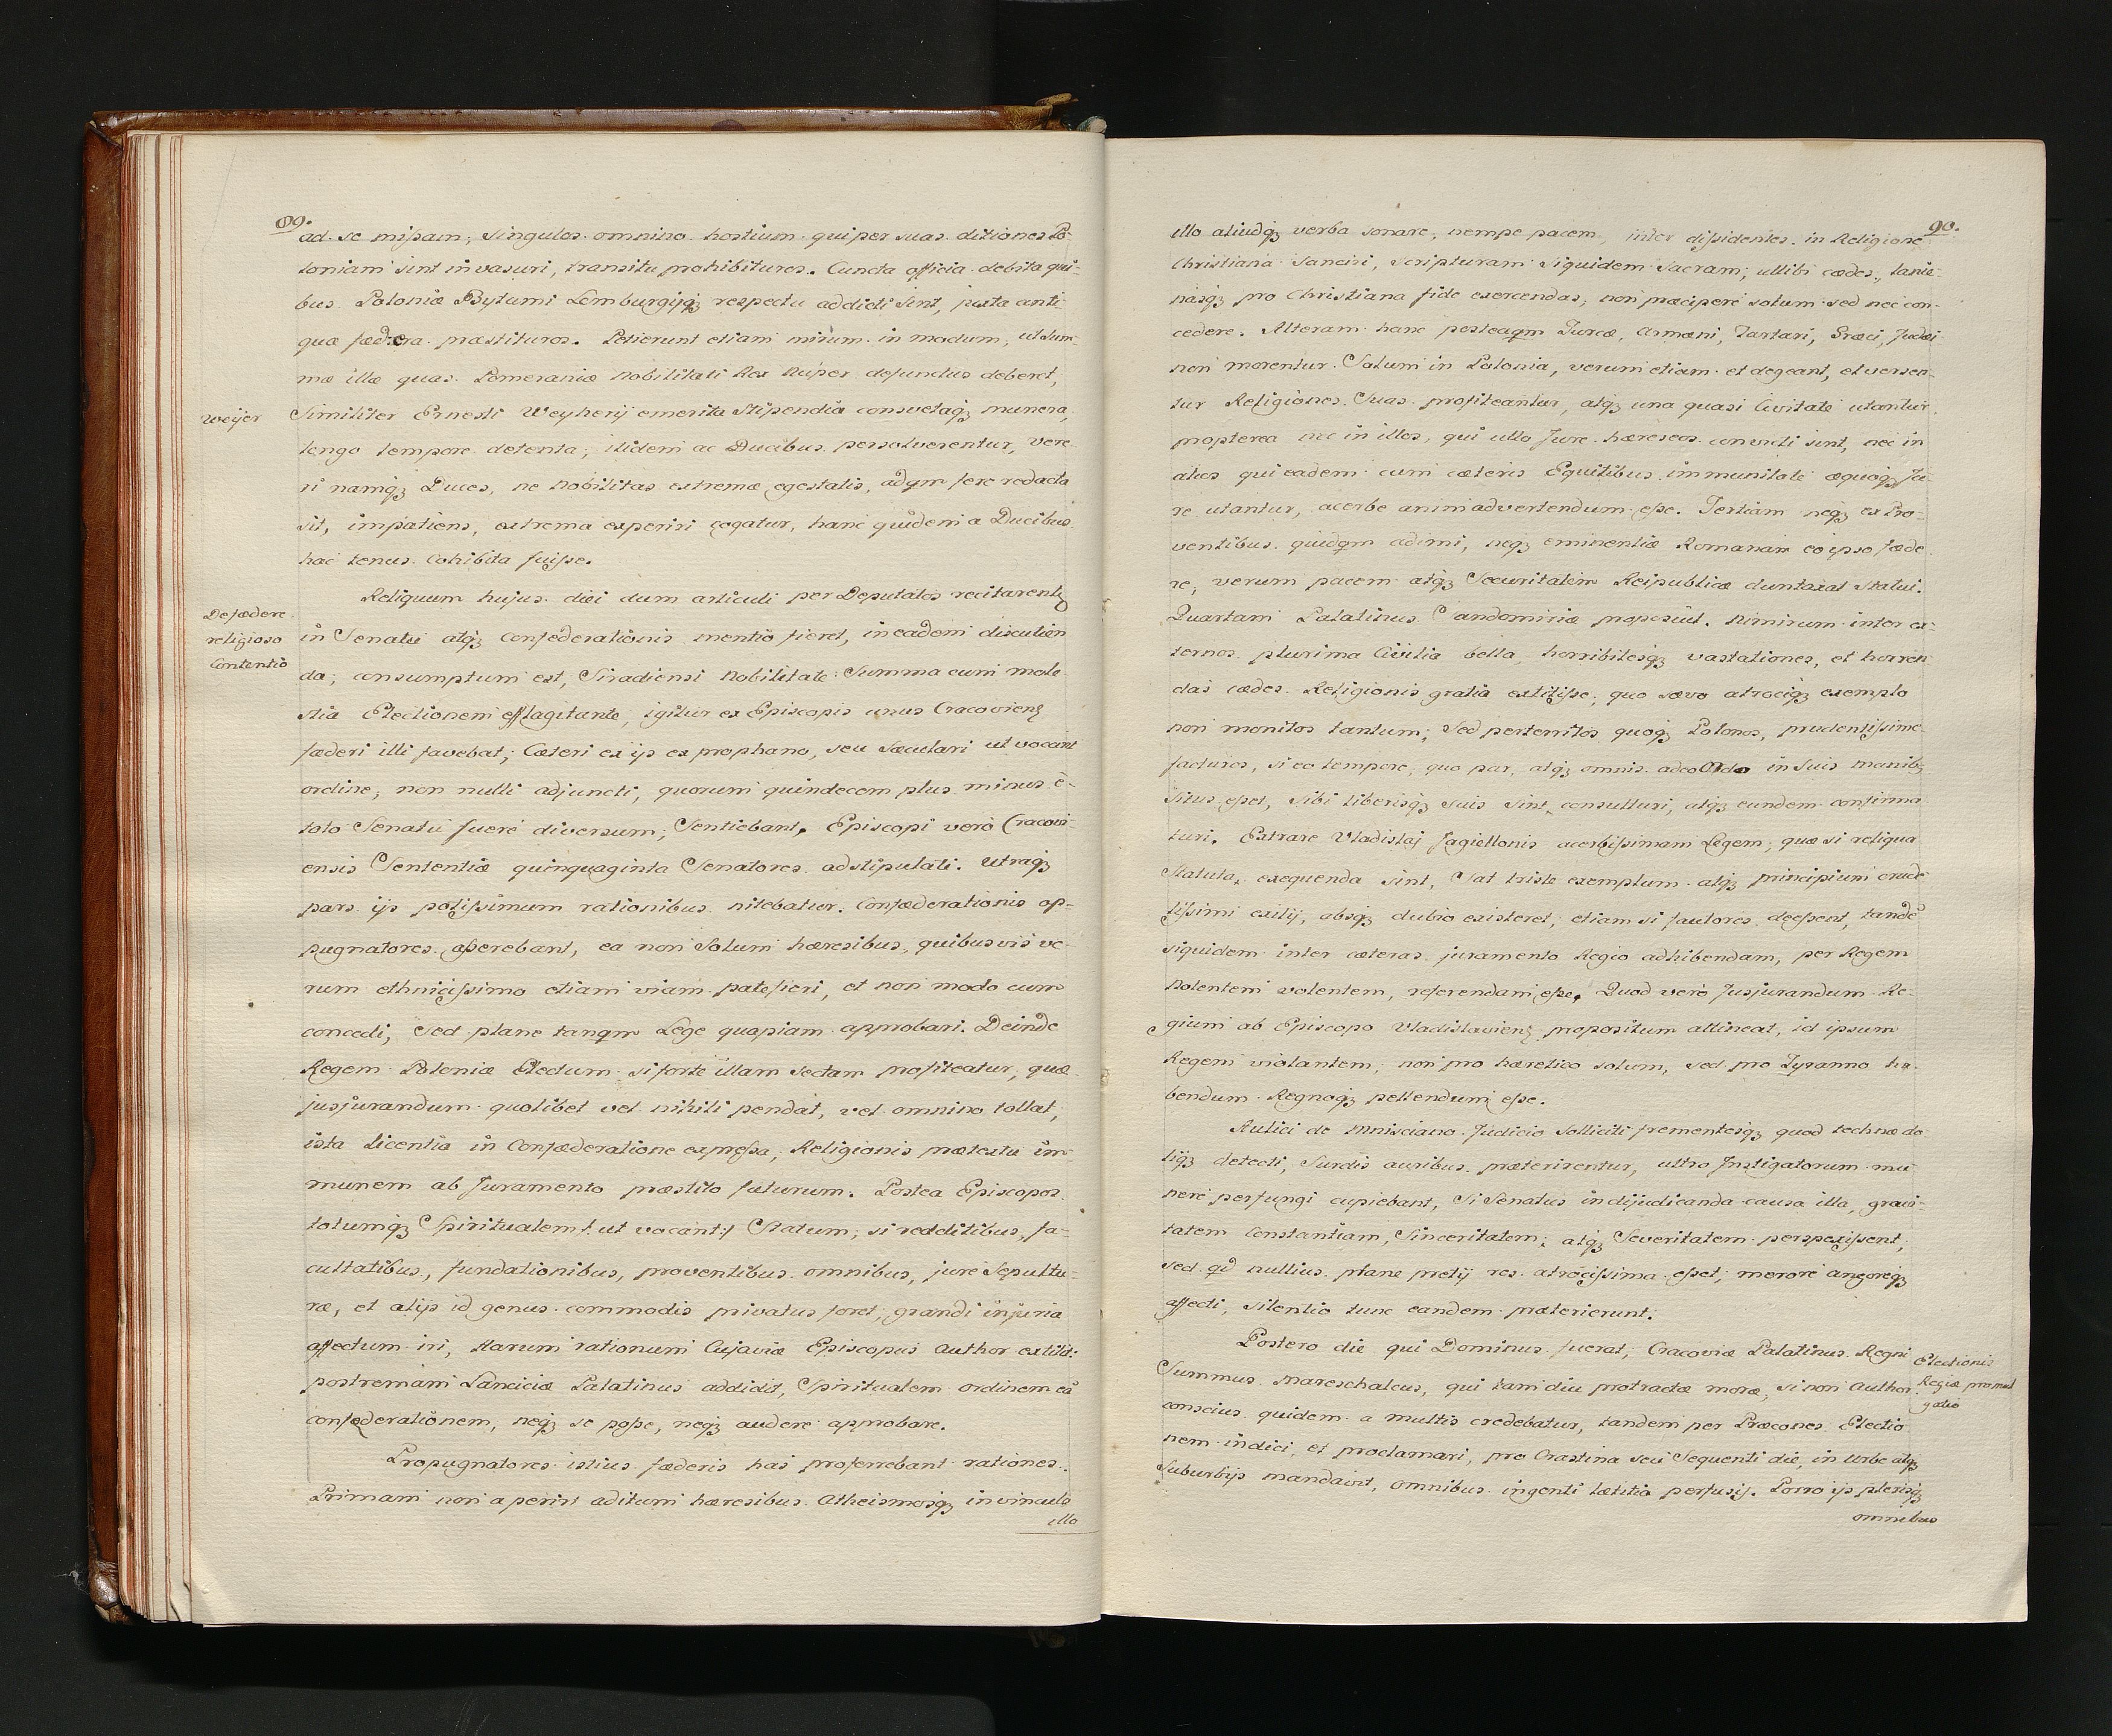 89.
ad se missam; singulos omnino hostium qui per suas ditiones Po-
loniam sint invasuri, transitu prohibituros. Cuncta officia debita qui-
bus Poloniæ Bytumi Lemburgijqꝫ respectu addicti sint, juxta anti-
qua fœdera præstituros. Petierunt etiam mirum in modum, ut sum-
mæ illæ quas Pomeraniæ Nobilitati Rex nuper defunctus deberet,
Weijer
Similiter Ernesti Weyherij emerita Stipendia consvetaqꝫ munera,
longo tempore detenta; itidem ac Ducibus persolverentur, vere
ri namqꝫ Duces, ne Nobilitas extremæ egestatis, ad qm fere redacta
sit, impatiens, extrema experiri cogatur, hanc quidem a Ducibus
hac tenus cohibita fuisse.
Reliquum hujus diei dum articuli per Deputatos recitarentꝫ
De fœdere
religioso
Contentio
in Senatu atqꝫ confederationis mentio fieret, in eadem discutien
da, consumptum est, Siradiensi Nobilitate Summa cum mole
stia Electionem efflagitante, igitur ex Episcopis unus Cracovienꝫ
fœderi illi favebat; Cæteri ex ijs ex prophano, seu Sæculari ut vocant
ordine, non nulli adjuncti, quorum quindecem plus minus è
toto Senatu fuere diversum, Sentiebant. Episcopi verò Cracovi-
ensis Sententiæ quinquaginta Senatores adstipulati. Utraqꝫ
pars ijs potissimum rationibus nitebatur. Confœderationis op-
pugnatores asserebant, ea non solum hæresibus, quibusvis ve-
rum ethnicissimo etiam viam patefieri, et non modo eum
concedi, sed plane tanqm Lege quapiam approbari. Deinde
Regem Poloniæ Electum si forte illam sectam profiteatur, quæ
jusjurandum quolibet vel nihili pendat, vel omnino tollat,
ista Licentia in Confœderatione expressa, Religionis prætextu im-
munem ab Juramento præstito futurum. Postea Episcopos
totumqꝫ Spiritualem /: ut vocant :/ Statum, si redditibus, fa-
cultatibus, fundationibus, proventibus omnibus, jure Sepultu-
ræ, et alijs id genus commodis privatus foret, grandi injuria
affectum iri, Harum rationum Cujaviæ Episcopus Author extitit:
postremam Lanciciæ Palatinus addidit, Spiritualem ordinem eã
confœderationem, neqꝫ se posse, neqꝫ audere approbare.
Propugnatores istius fœderis has proferrebant rationes.
Primam non aperiri aditum hæresibus Atheismosqꝫ in vinculo
illo
90.
illo aliudqꝫ verba sonare, nempe pacem, inter dissidentes in Religione
Christiana Sanciri, scripturam siquidem Sacram, ullibi cædes, lanie-
nasqꝫ pro Christiana fide exercendas, non præcipere solum sed nec con-
cedere. Alteram hanc posteaqm Turcæ, Armæni, Tartari, Græci, Judæi
non morentur Solum in Polonia, verum etiam et degeant, et versen-
tur Religiones Suas profiteantur, atqꝫ una quasi Civitate utantur
propterea nec in illos, qui ullo Jure hæreseos convicti sint, nec in
alios qui eadem cum cæteris Equitibus immunitate æquoqꝫ Ju-
re utantur, acerbe animadvertendum esse. Tertiam neqꝫ ex Pro-
ventibus quidqm adimi, neqꝫ eminentiæ Romanam eo ipso fæde
re, verum pacem atqꝫ Securitatem Reipublicæ duntaxat Statui.
Quartam Palatinus Sandomiriæ proposuit. Nimirum inter ex-
ternos plurima Civilia bella, horribilesqꝫ vastationes, et horren
das cædes Religionis gratia extitisse, quo sævo atrociqꝫ exemplo
non monitos tantum, sed perterritos quoqꝫ Polonos, prudentissime
facturos, si eo tempore, quo par, atqꝫ omnis adeo Ordo in suis manibꝫ
situs esset, sibi liberisqꝫ suis sint consulturi, atqꝫ eundem confirma
turi. Extrare Vladislaj Jagiellonis acerbissimam Legem, quæ si reliqua
Statuta, exequenda sint, Sat triste exemplum atqꝫ principium crude
lissimi exilij, absqꝫ dubio existeret, etiam si fautores deessent, tandẽ
siquidem inter cæteras juramento Regio adhibendam, per Regem
nolentem volentem, referendam esse. Quod verò Jusjurandum Re-
gium ab Episcopo Vladislavienꝫ propositum attineat, id ipsum
Regem violantem, non pro hæretico solum, sed pro Tyranno ha-
bendum Regnoqꝫ pellendum esse.
Aulici de Mnisciano Judicio solliciti frementesqꝫ quod technæ do
liqꝫ detecti, Surdis auribus præterirentur, ultro Instigatorum mu
nere perfungi cupiebant, si Senatus in dijudicanda causa illa, gravi-
tatem Constantiam, Sinceritatem, atqꝫ Severitatem perspexissent,
sed qd nullius plane pretij res atrocissima esset, merore angoreqꝫ
affecti, silentio tunc eandem præterierunt.
Postero die qui Dominus fuerat, Cracoviæ Palatinus Regni
Electionis
Regiæ promul
gatio
Summus Mareschalcus, qui tam diu protractæ moræ, si non Author
conscius quidem a multis credebatur, tandem per Præcones Electio
nem indici, et proclamari, pro Crastina seu Sequenti die, in Urbe atqꝫ
suburbijs mandavit, omnibus ingenti lætitia perfusis. Porro ijs plerisqꝫ
omnibus